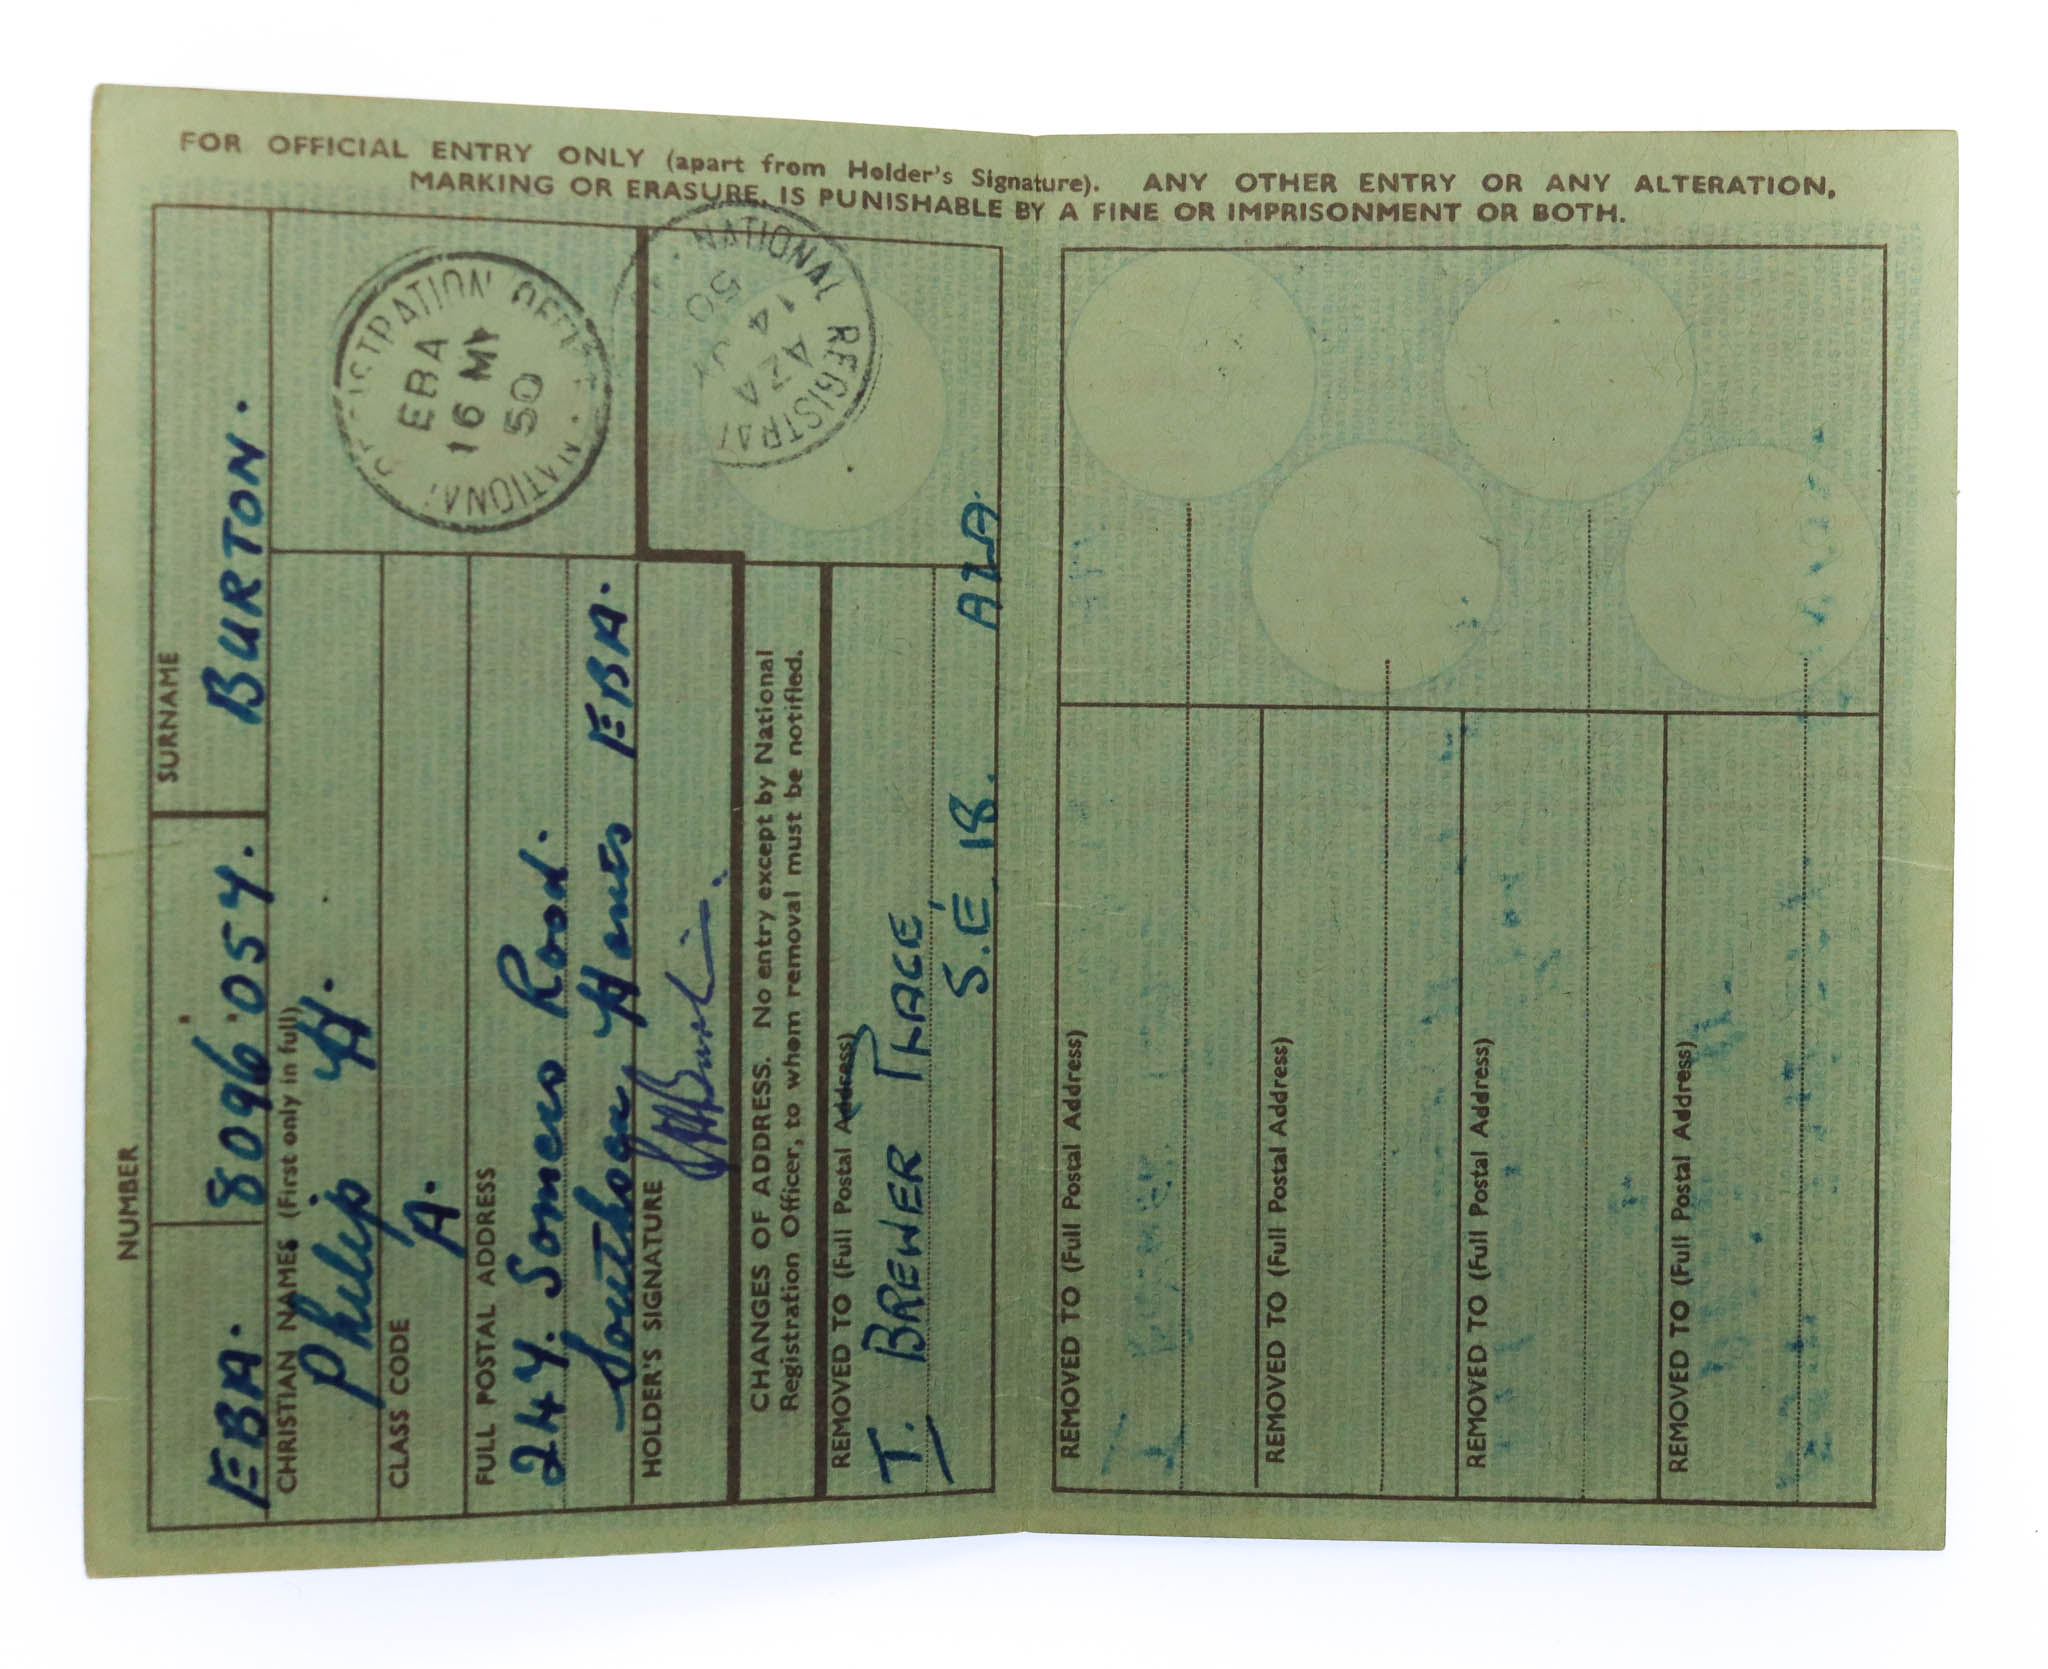 FOR OFFICIAL ENTRY ONLY (apart from Holder's Signature). ANY OTHER ENTRY OR ANY ALTERATION,
MARKING OR ERASURE, IS PUNISHABLE BY A FINE OR IMPRISONMENT OR BOTH.
NUMBER
SURNAME
EBA. 8096 057. BURTON.
CHRISTIAN NAMES (First only in full)
Philip H.
CLASS CODE
A.
FULL POSTAL ADDRESS
247. Road.
EBA.
HOLDER'S SIGNATURE
REGISTRATION OFFICE · NATIONAL
EBA
16 MY
50
CHANGES OF ADDRESS. No entry except by National
Registration Officer, to whom removal must be notified.
REMOVED TO (Full Postal Address)
BREWER PLACE,
S.E. 18.
NATIONAL REGISTRAT
14
50
REMOVED TO (Full Postal Address)
REMOVED TO (Full Postal Address)
REMOVED TO (Full Postal Address)
REMOVED TO (Full Postal Address)